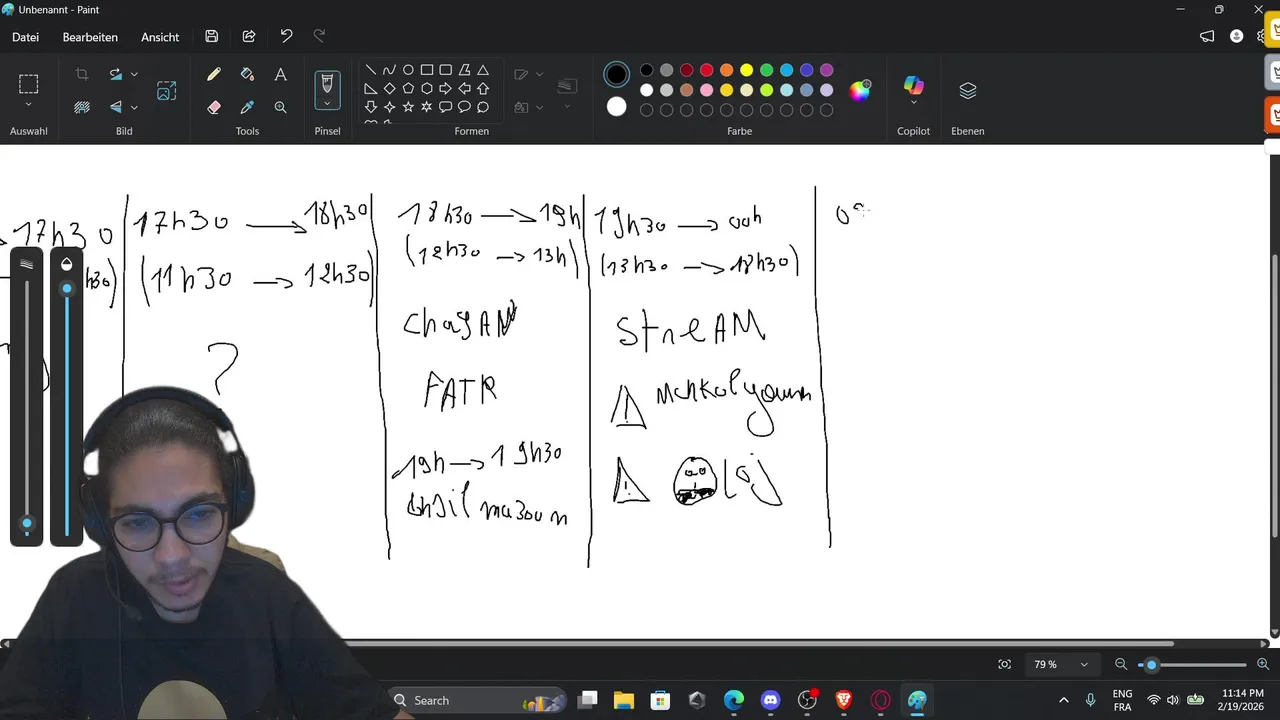 Unbenannt - Paint
Datei Bearbeiten Ansicht
Auswahl Bild Tools Pinsel Formen Farbe Copilot Ebenen
17h30
h30)
17h30 → 18h30
(11h30 → 12h30
?
18h30 → 19h
(12h30 → 13h)
ChagAN
FATR
19h → 19h30
19h30 → 00h
(13h30 → 18h30)
StreAM
79 %
Search
ENG
FRA
11:14 PM
2/19/2026